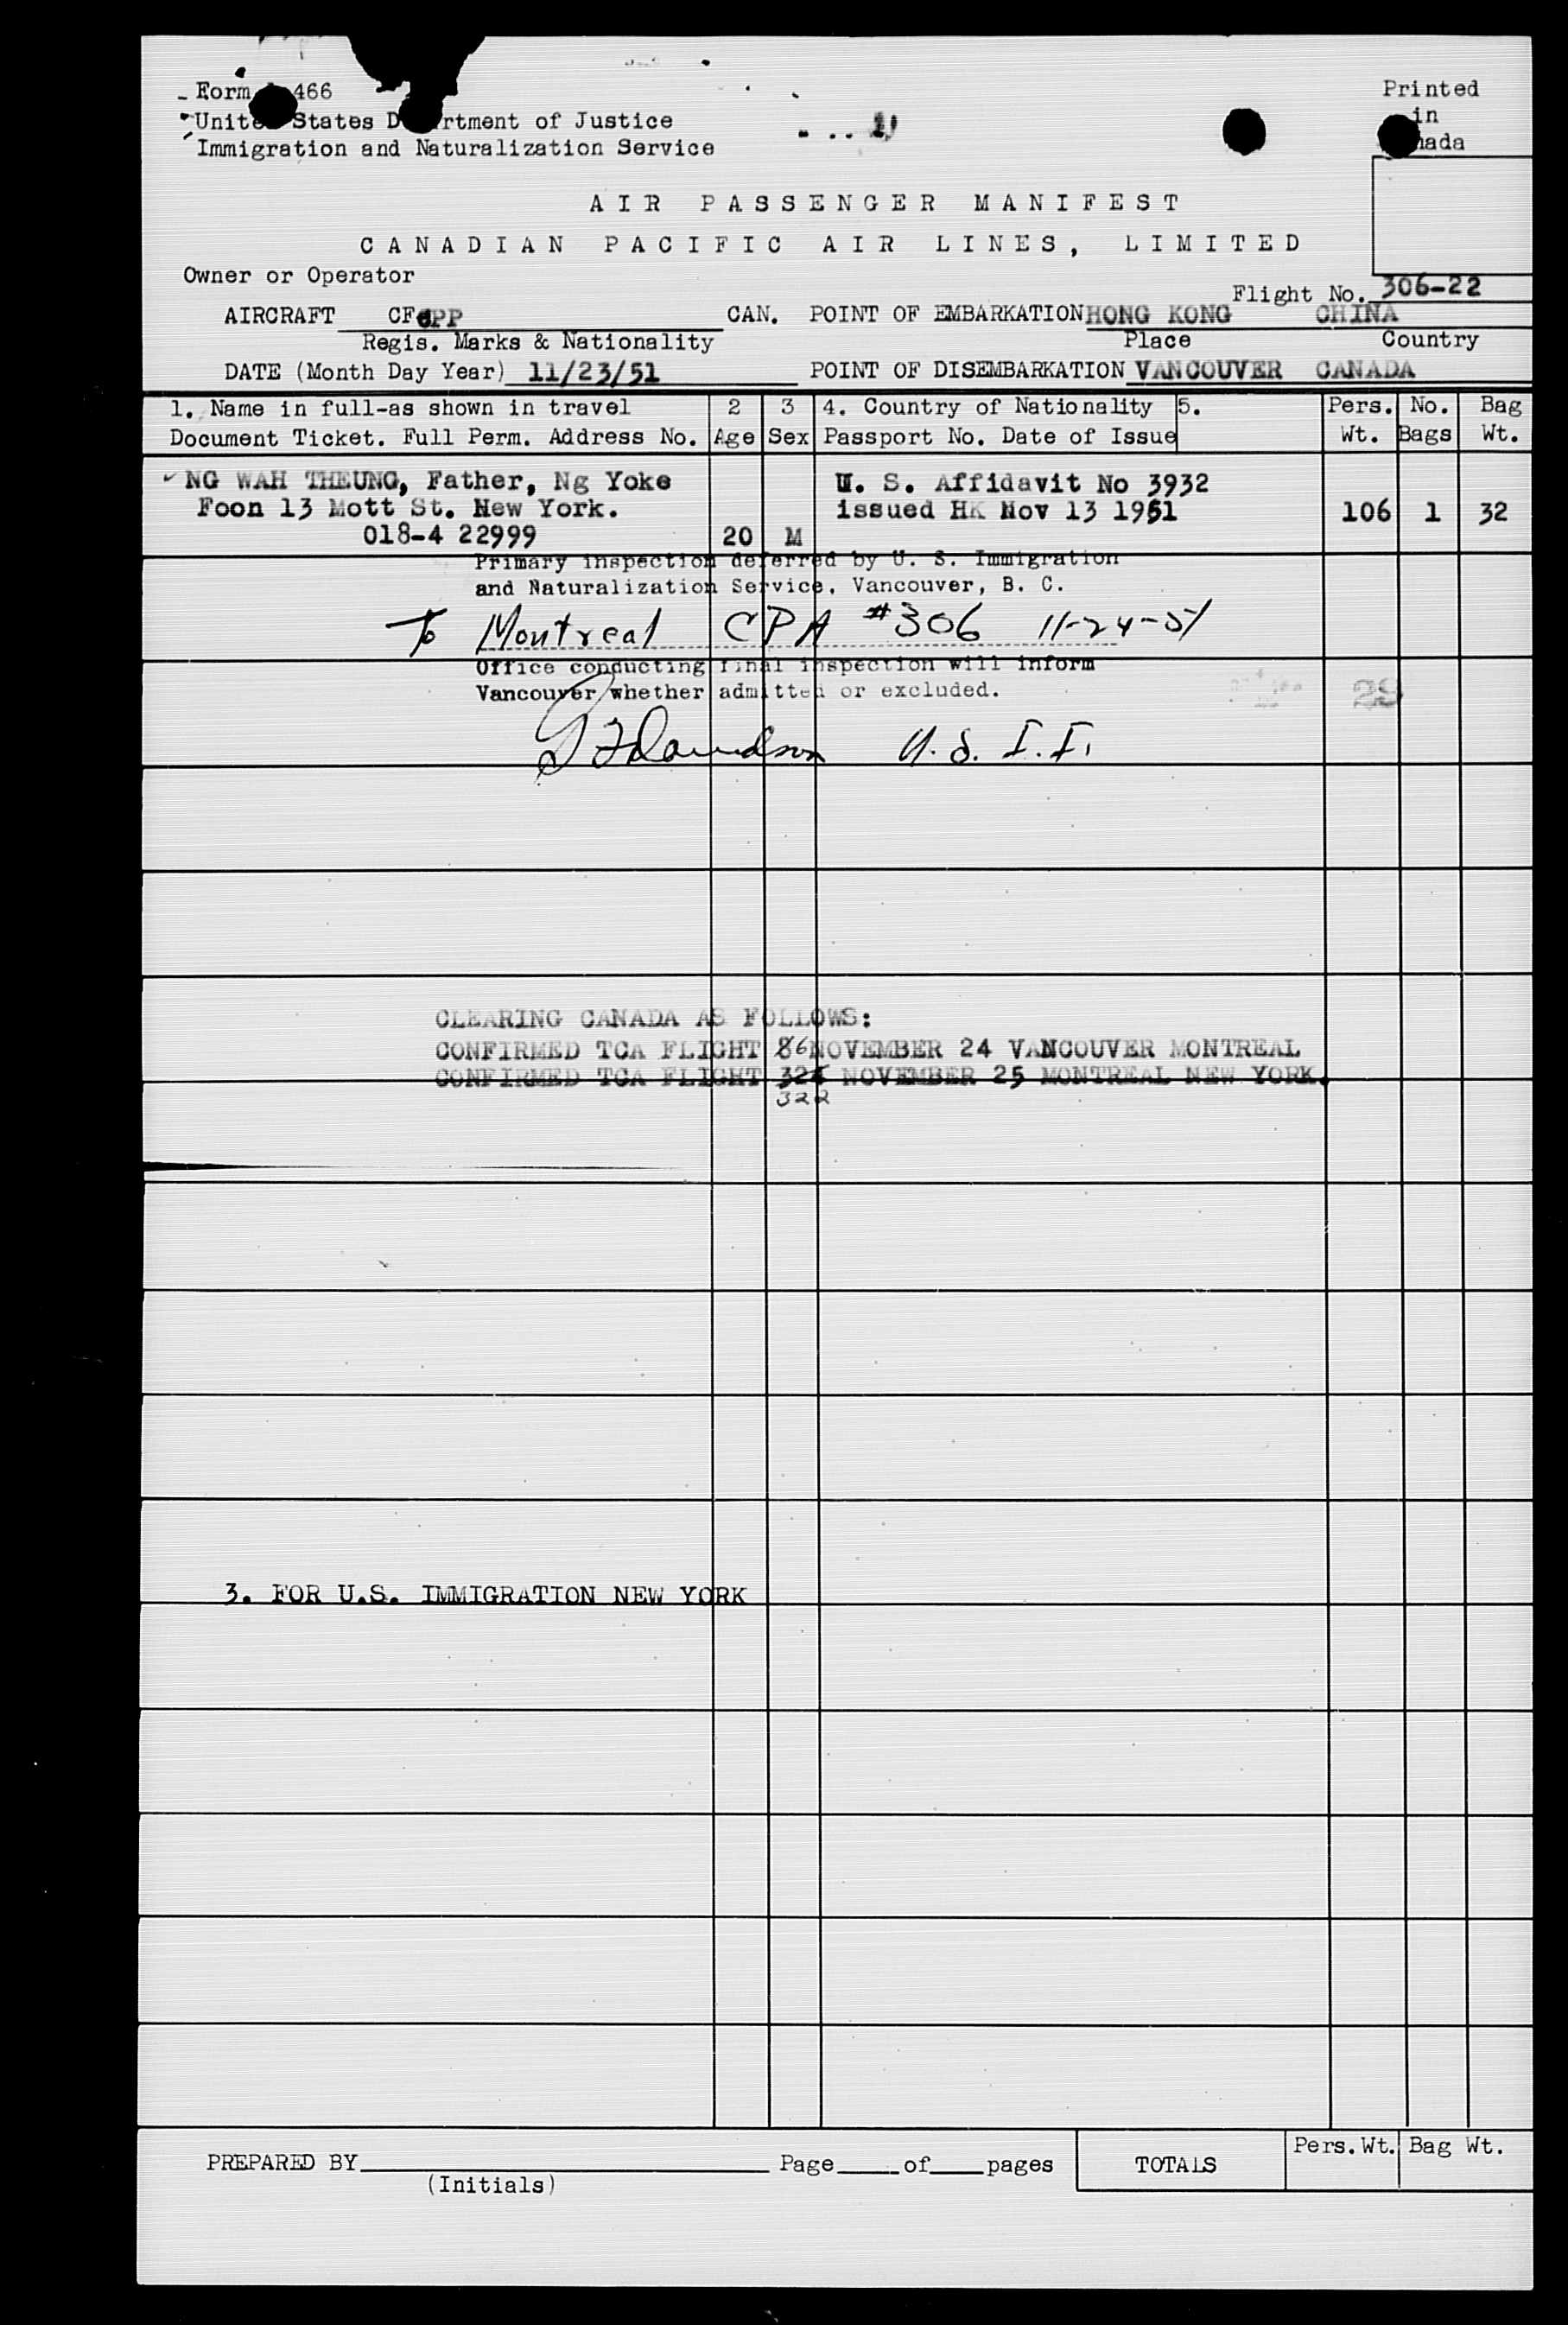 Form 466
United States Department of Justice
Immigration and Naturalization Service
Printed
in
Canada
AIR PASSENGER MANIFEST
CANADIAN PACIFIC AIR LINES, LIMITED
Owner or Operator
Flight No. 306-22
AIRCRAFT CFCPP CAN. POINT OF EMBARKATION HONG KONG CHINA
Regis. Marks & Nationality Place Country
DATE (Month Day Year) 11/23/51 POINT OF DISEMBARKATION VANCOUVER CANADA
1. Name in full-as shown in travel 2 3 4. Country of Nationality 5. Pers. No. Bag
Document Ticket. Full Perm. Address No. Age Sex Passport No. Date of Issue Wt. Bags Wt.
NG WAH THEUNG, Father, Ng Yoke U. S. Affidavit No 3932
Foon 13 Mott St. New York. issued HK Nov 13 1951 106 1 32
018-4 22999 20 M
Primary inspection deferred by U. S. Immigration
and Naturalization Service, Vancouver, B. C.
To Montreal CPA #306 11-24-51
Office conducting final inspection will inform
Vancouver whether admitted or excluded.
29
Davidson U. S. I. I.
CLEARING CANADA AS FOLLOWS:
CONFIRMED TCA FLIGHT 86 NOVEMBER 24 VANCOUVER MONTREAL
CONFIRMED TCA FLIGHT 324 NOVEMBER 25 MONTREAL NEW YORK.
322
3. FOR U.S. IMMIGRATION NEW YORK
PREPARED BY Page of pages TOTALS Pers. Wt. Bag Wt.
(Initials)